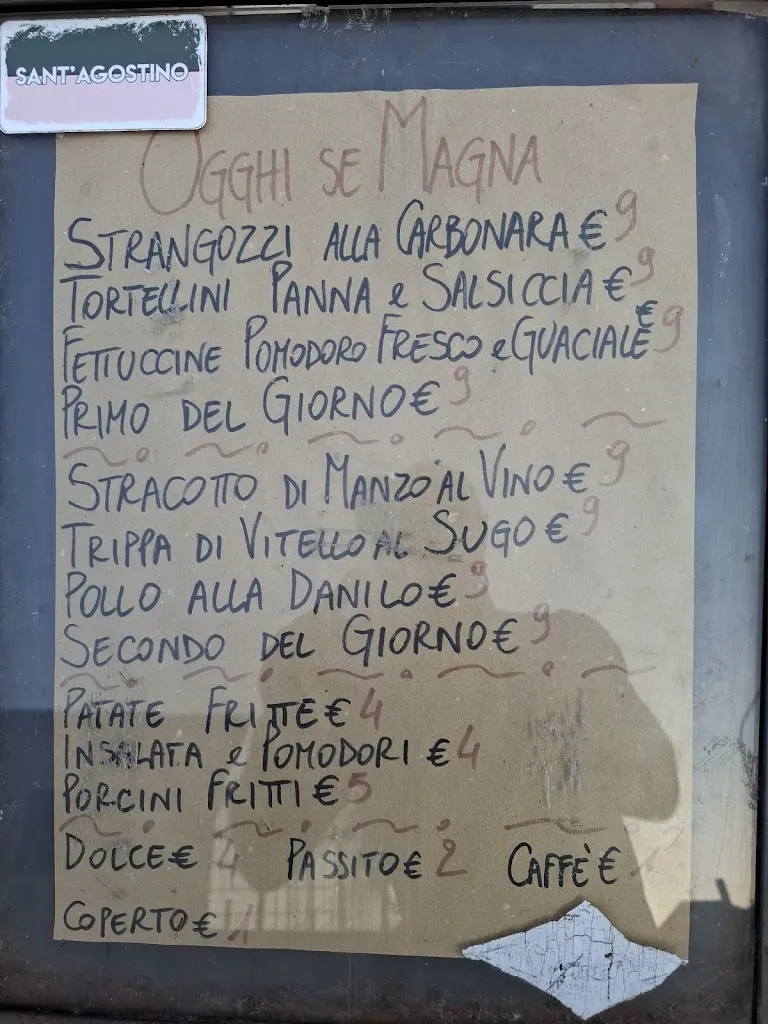 SANT'AGOSTINO
OGGHI SE MAGNA
STRANGOZZI ALLA CARBONARA € 9
TORTELLINI PANNA e SALSICCIA € 9
FETTUCCINE POMODORO FRESCO e GUACIALE € 9
PRIMO DEL GIORNO € 9
STRACOTTO DI MANZO AL VINO € 9
TRIPPA DI VITELLO AL SUGO € 9
POLLO ALLA DANILO € 9
SECONDO DEL GIORNO € 9
PATATE FRITTE € 4
INSALATA e POMODORI € 4
PORCINI FRITTI € 5
DOLCE € 4 PASSITO € 2 CAFFÈ €
COPERTO € 1